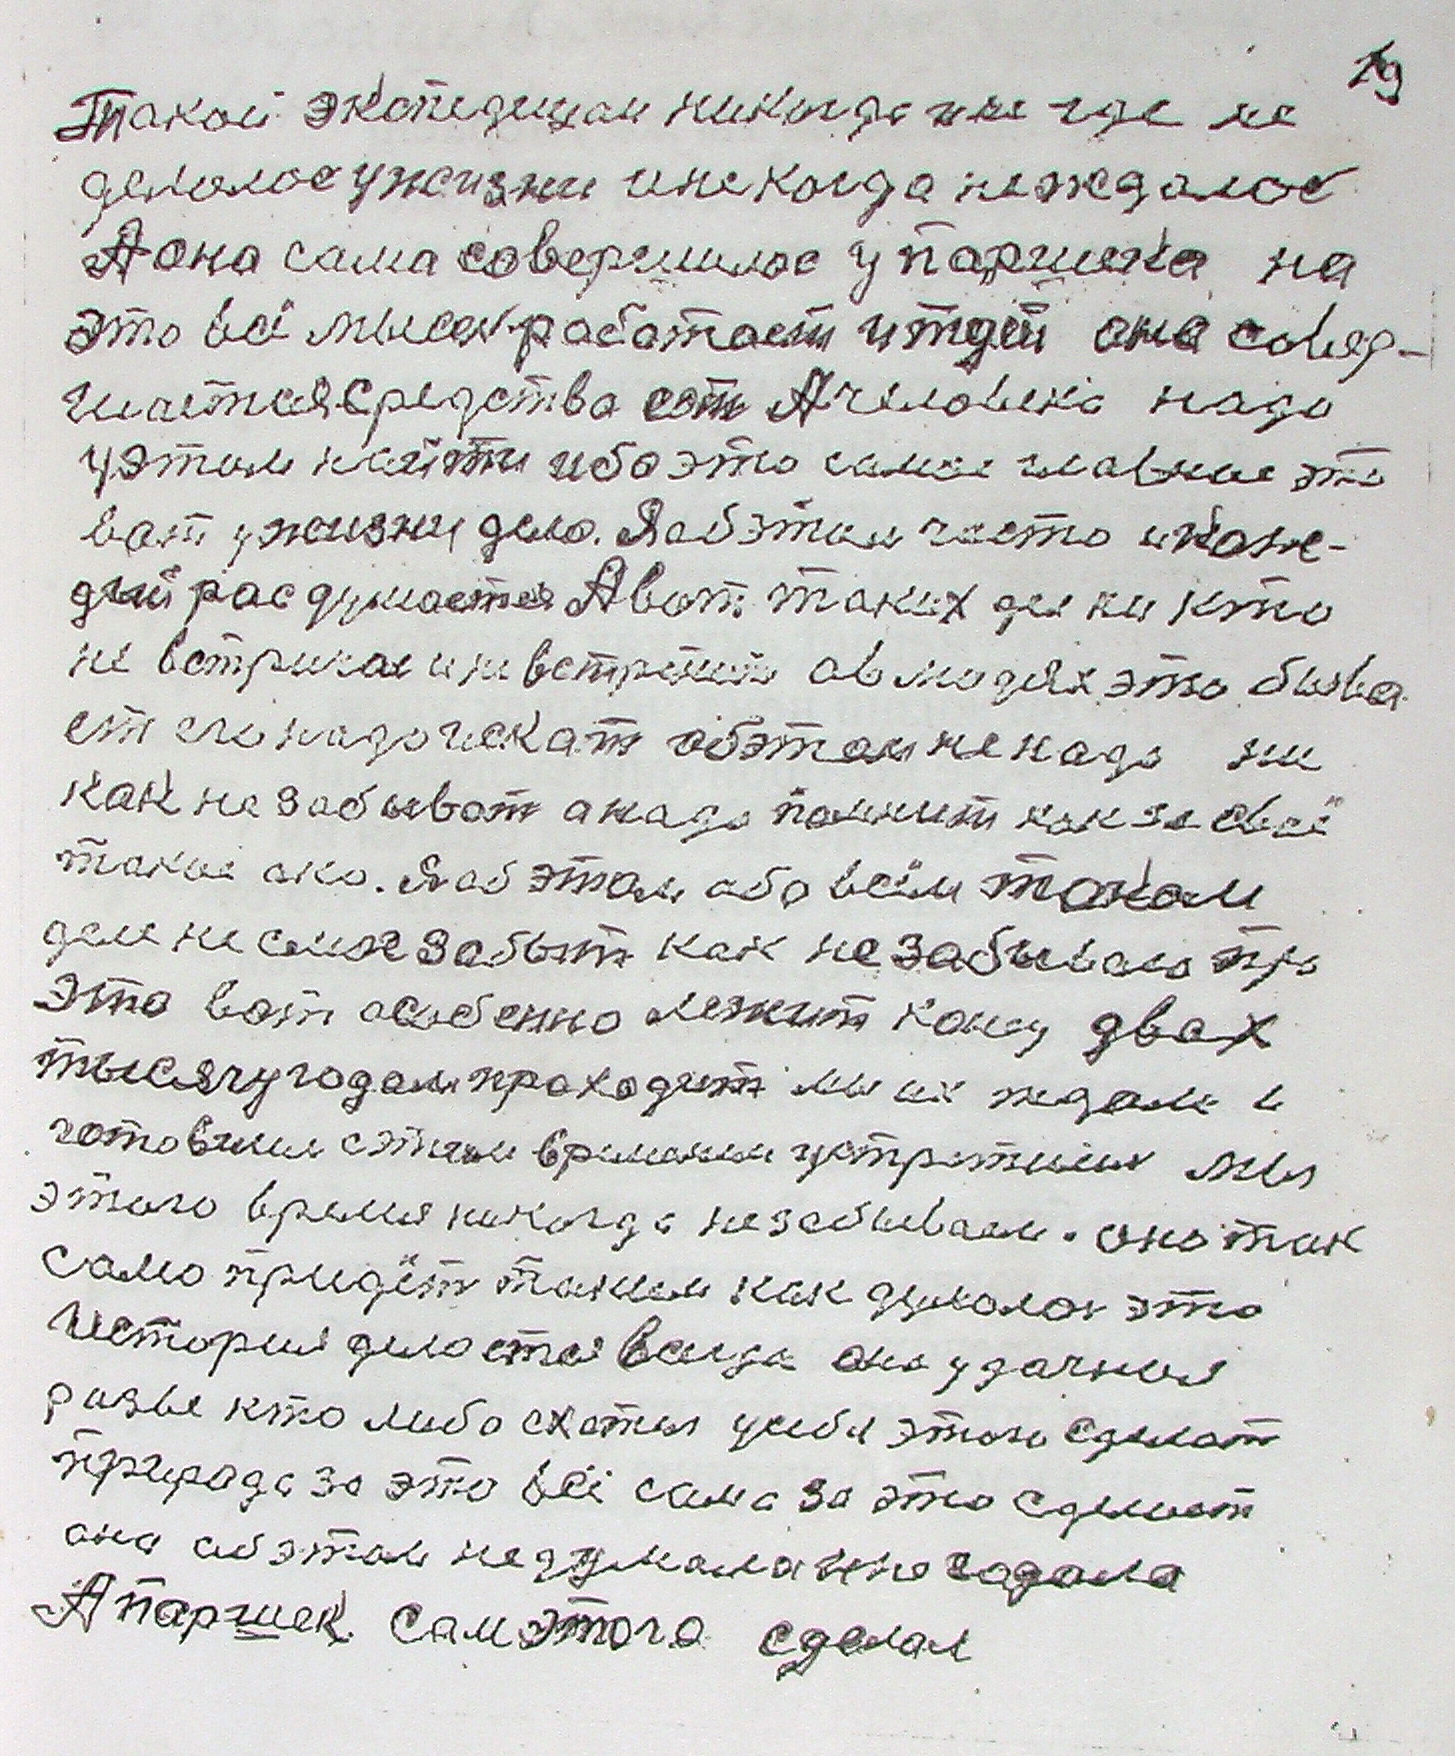 19
Такой экспедиции никогда и не где не
делалос у жизни и не когда не ждалос
А она сама совершилос у паршека на
это всё мысля работает и тдёт она совер-
шается средства ест А человека надо
у этом найти ибо это самое главное это
вот у жизни дело. Я об этим часто и каж-
дый рас думается А вот таких дел ни кто
не встричал и не встретит а в людях это быва
ет его надо искат об этом не надо ни
как не забыват а надо помнит как за своё
такое око. Я об этом обо всём таком
деле не смог забыт как не забываю про
это вот особенно лежит конец двох
тысячу годам проходит мы их ждали и
готовимся с этим временем устретится мы
этого время никогда не забываем. оно так
само придёт таким как думалос это
история делается всегда она удачная
разве кто либо схотел у себя этого сделат
природа за это всё сама за это сделает
она об этом не думала и не гадала
А паршек сам этого сделал